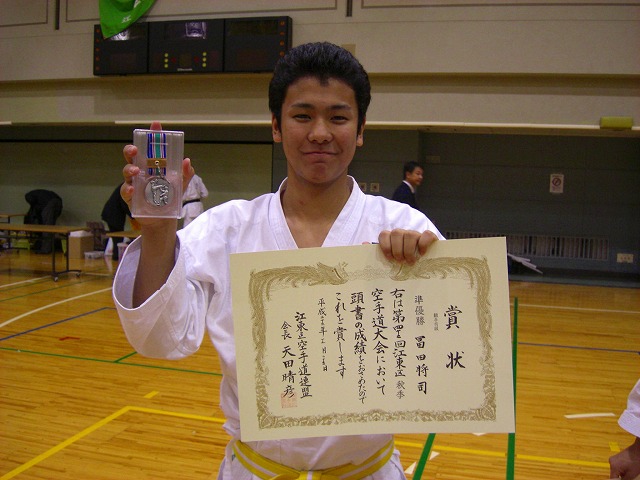 賞状
準優勝 冨田将司
右は第四回江東区秋季
空手道大会において
頭書の成績をおさめたので
これを賞します
江東区空手道連盟
会長 天田晴彦